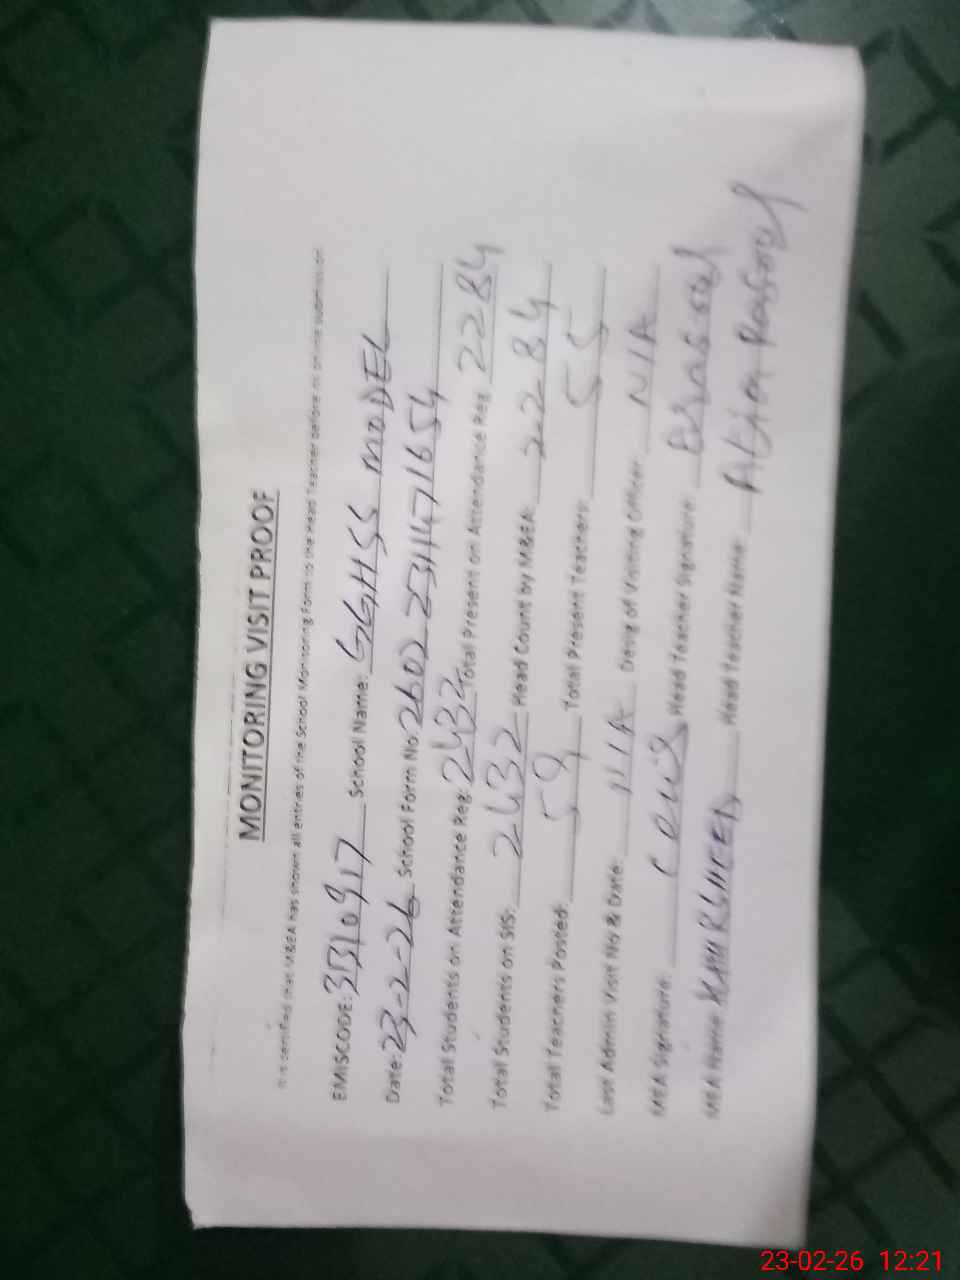 MONITORING VISIT PROOF
It is certified that M&EA has shown all entries of the School Monitoring Form to the Head Teacher before its online submission
EMISCODE: 3310917 School Name: GGHSS MODEL
Date: 23-2-26 School Form No: 26022311471654
Total Students on Attendance Reg: 2432 Total Present on Attendance Reg: 2284
Total Students on SIS: 2432 Head Count by M&EA: 2284
Total Teachers Posted: 59 Total Present Teachers: 55
Last Admin Visit No & Date: N/A Desig of Visiting Officer: N/A
MEA Signature: Head Teacher Signature:
MEA Name: KHURSHEED Head Teacher Name: Rasool
23-02-26 12:21